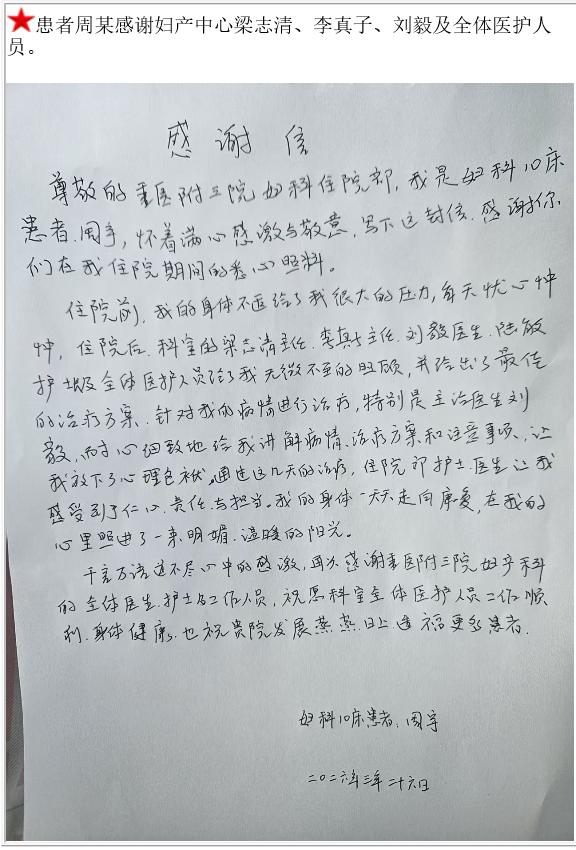 患者周某感谢妇产中心梁志清、李真子、刘毅及全体医护人
员。
感谢信
尊敬的重医附三院妇科住院部,我是妇科10床
患者.周宇,怀着满心感激与敬意,写下这封信.感谢你
们在我住院期间的悉心照料。
住院前,我的身体不适给了我很大的压力,每天忧心忡
忡,住院后.科室的梁志清主任.李真子主任.刘毅医生.陆敏
护士及全体医护人员给了我无微不至的照顾,并给出了最佳
的治疗方案.针对我的病情进行治疗,特别是主治医生刘
毅,耐心细致地给我讲解病情.治疗方案和注意事项,让
我放下了心理包袱.通过这几天的治疗,住院部护士.医生让我
感受到了仁心.责任.与担当。我的身体一天天走向康复,在我的
心里照进了一束明媚.温暖的阳光。
千言万语道不尽心中的感激,再次感谢重医附三院妇产科
的全体医生.护士及工作人员,祝愿科室全体医护人员工作顺
利.身体健康.也祝贵院发展蒸蒸日上造福更多患者.
妇科10床患者:周宇
二〇二六年三年二十六日